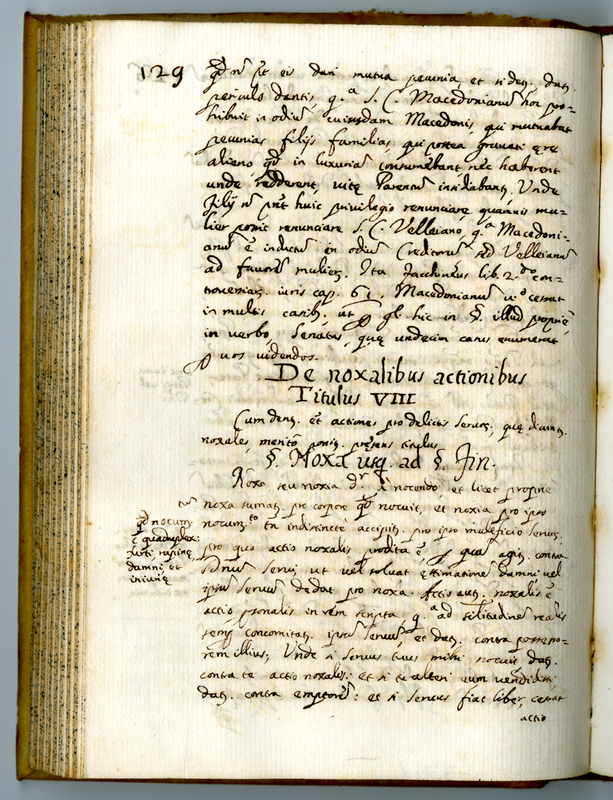 129
periculo dantis, q.a S. C. Macedonianũ hoc pro=
hibuit in odiũ cuiusdam Macedonis, qui mutuabat
pecunias filijs familias, qui postea gravati ære
alieno in luxuria consumebant nec haberent
unde redderent, vitæ Parentũ insidiabant, Unde
filij nõ põt huic privilegio renunciare quamvis mu=
lier possit renunciare S. C. Velleiano, q.a Macedoni=
anũ ẽ inductũ in odiũ Creditorũ sed Velleianũ
ad favorẽ mulieris. Ita Facchineus lib. 2.do con=
troversiar. iuris cap. 61, Macedonianũ v.o cessat
in multis casib. ut gl. hic in §. illud propriè
in verbo, Senatus, quæ undecim casus enumerat
quos videndos.
De noxalibus actionibus
Titulus VIII
Cum dent. et actiones pro delictis servor. quæ dicunt.
noxales, meritò ponit. præsens titulus
§. Noxa usq. ad §. fin.
Noxa seu noxia dr. à nocendo, et licet propriè
noxa sumat. pro corpore qđ nocuit, et noxia pro ipso
nocum.to tñ indistinctè accipit. pro ipso maleficio servi,
pro quo actio noxalis prodita ẽ, p quã agit. contra
Dñum servi ut vel solvat estimationẽ damni vel
ipsũ servũ dedat pro noxa. Actio aut. noxalis ẽ
actio psonalis in rem scripta, q.a ad similitudinẽ realis
semp concomitat. ipsũ servũ, et dat. contra possesso=
rem illius; Unde si servus tuus mihi nocuit dat.
contra te actio noxalis: et si te alteri eum vendidisti
dat. contra emptorẽ: et si servus fiat liber, cessat
actio
qđ nocum.
ẽ quadruplex:
furti rapinæ,
damni et
iniuriæ